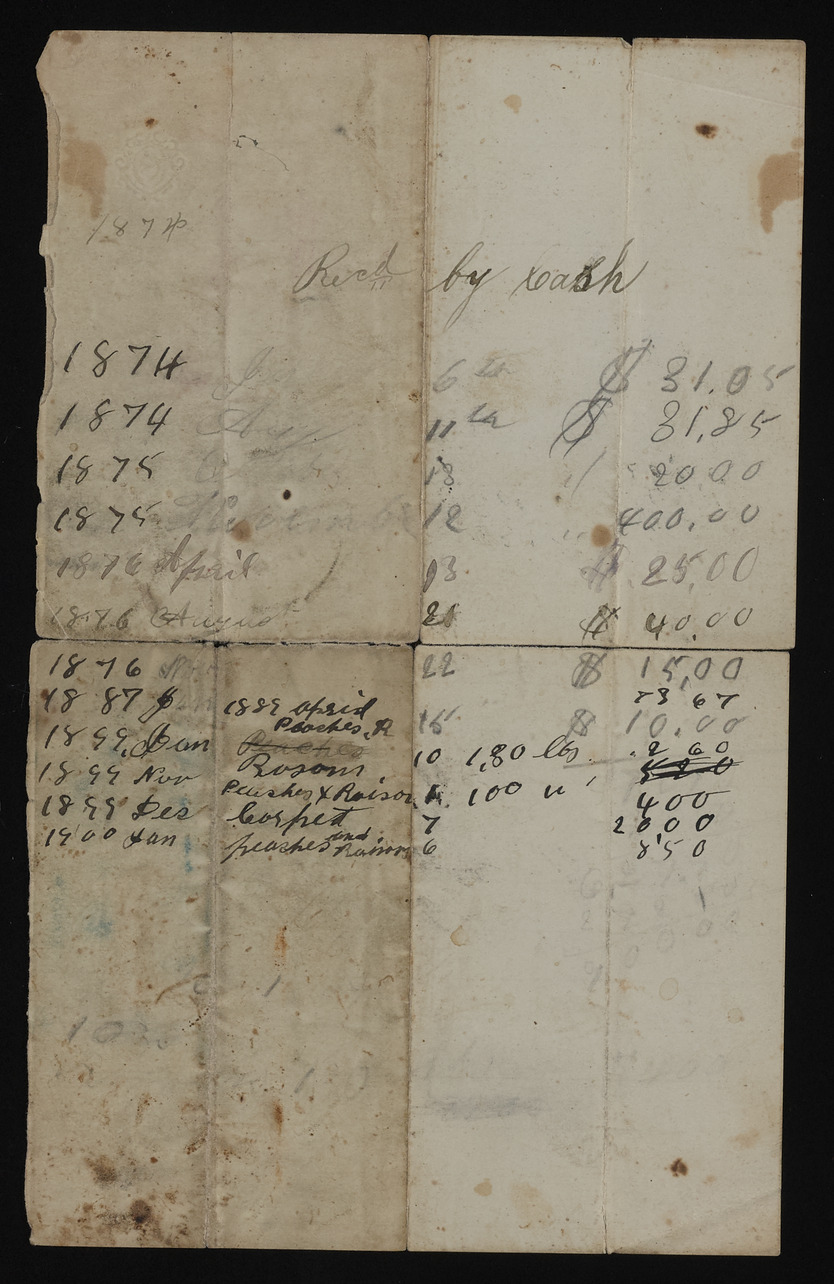 1874
Recd by Cash
1874 6 th $ 31.05
1874 Aug 11 th $ 31.85
1875 18 " 20 00
1875 12 " 400.00
1876 April 13 $ 25.00
1876 August 21 $ 40.00
1876 22 $ 15,00
1889 April 73 67
1887 Peaches, R 15 $ 10.00
1899, Jan Peaches Rosons 10 1,80 lbs . 2 60
520
1899 Nov Peaches & Raison 100 " 400
1899 Des Corpet 7 2000
1900 Jan peaches and Raisons 6 850